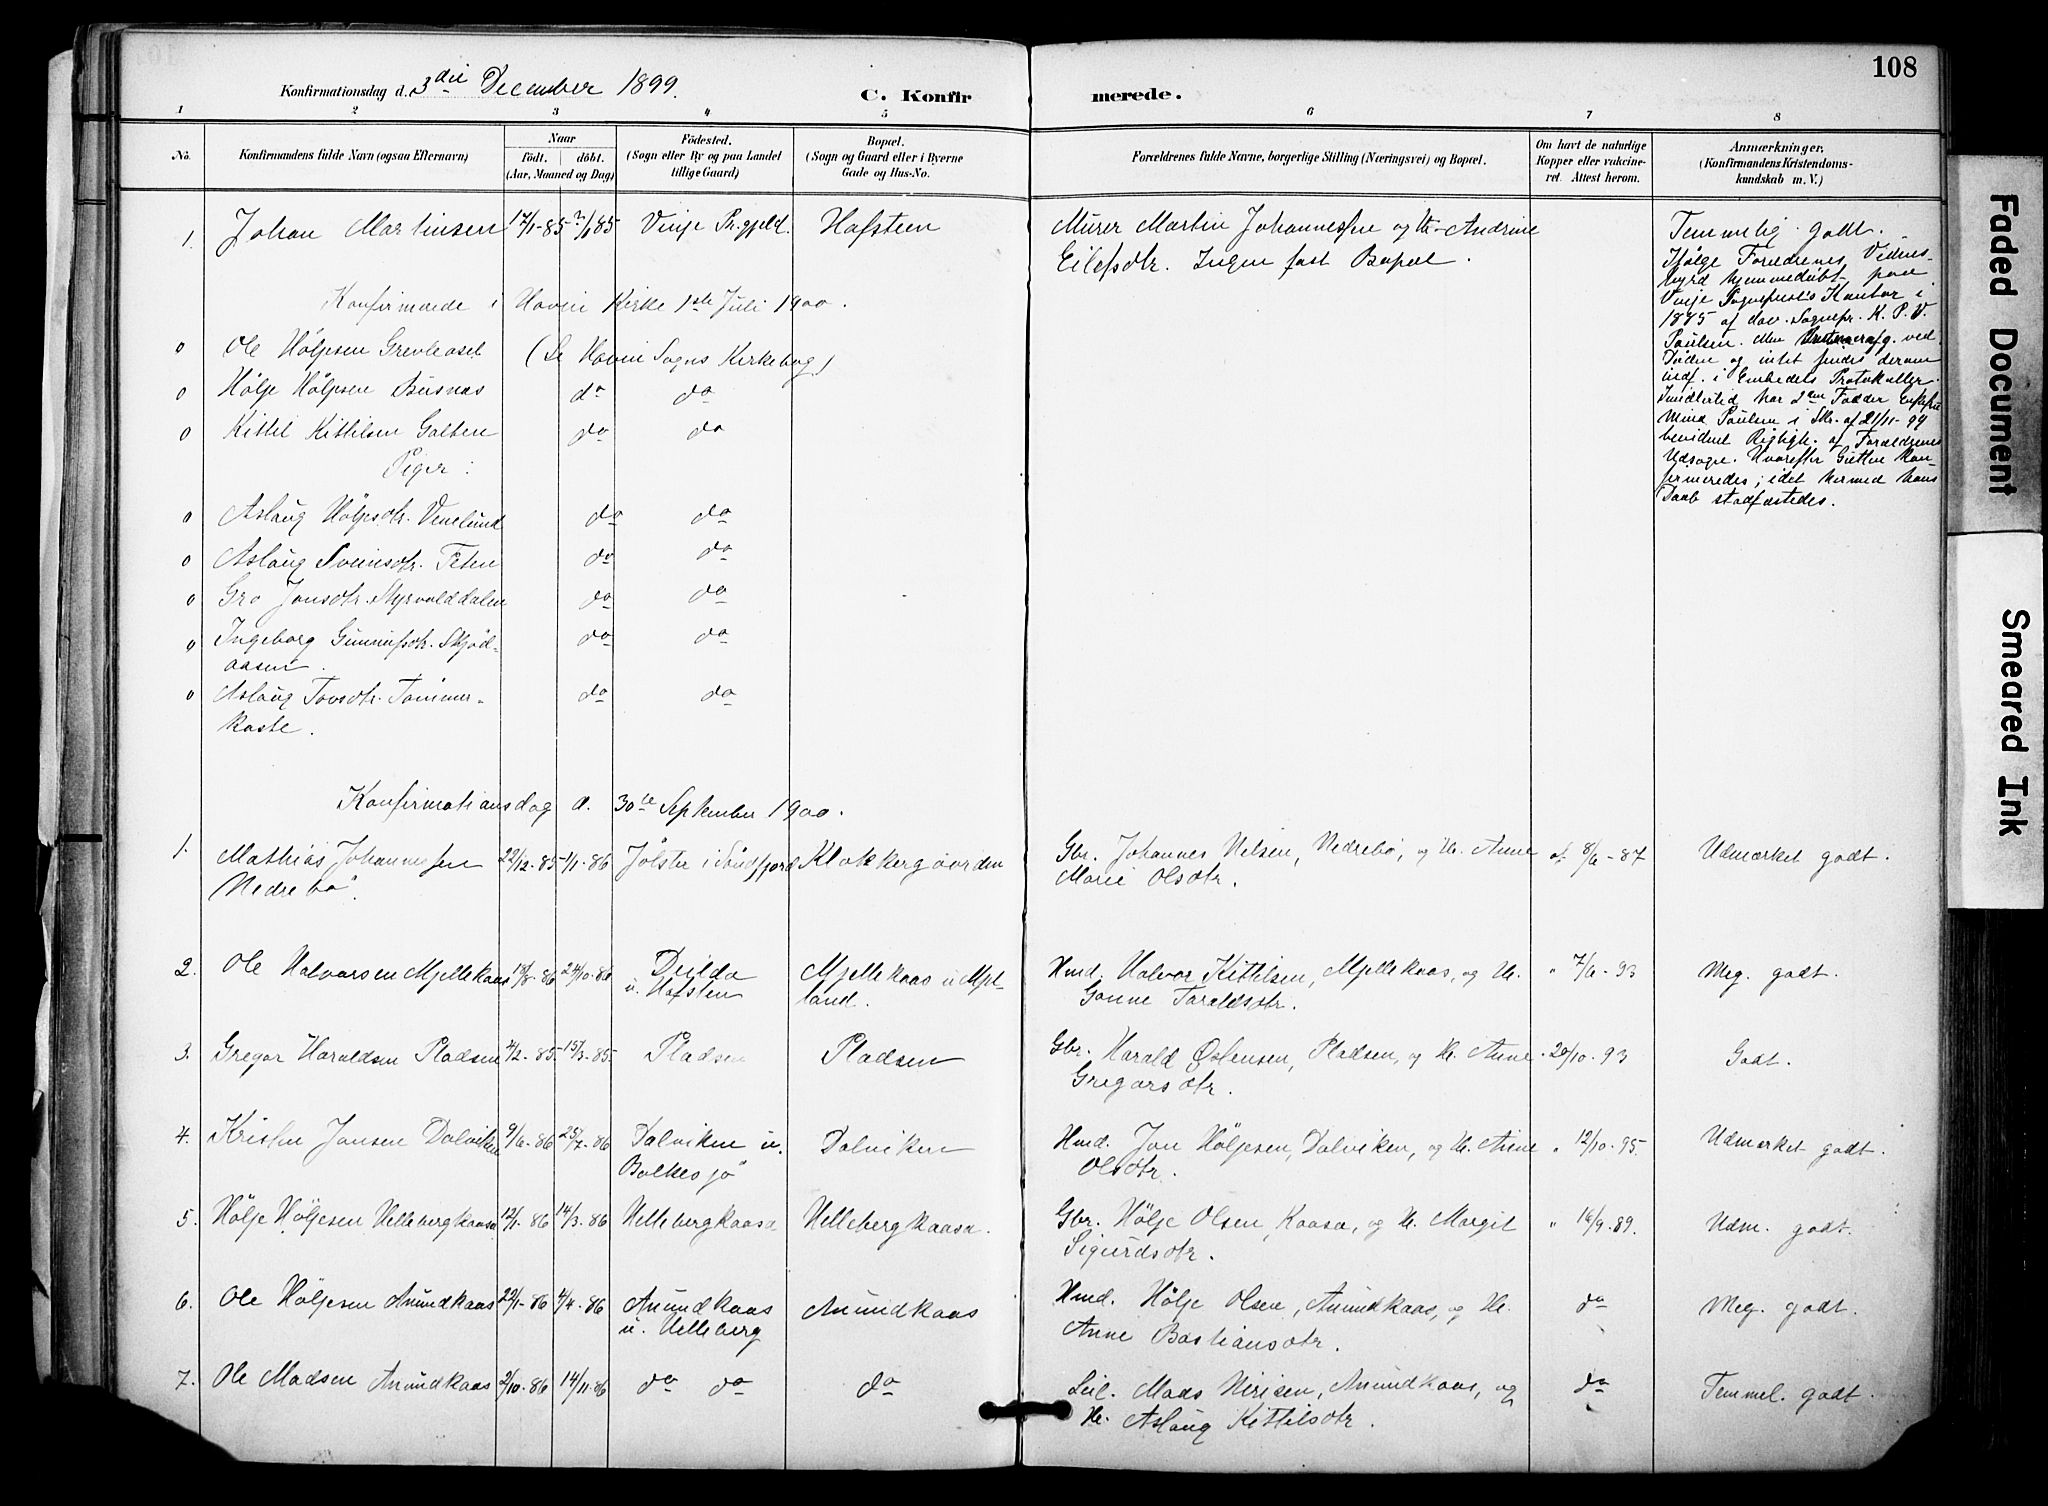 108
Konfirmationsdag d. 3die December 1899.
C. Konfirmerede.
1 2 3 4 5 6 7 8
No.
Konfirmandens fulde Navn (ogsaa Efternavn)
Naar
födt. döbt.
(Aar, Maaned og Dag)
Födested.
(Sogn eller By og paa Landet
tillige Gaard)
Bopæl.
(Sogn og Gaard eller i Byerne
Gade og Hus-No.
Forældrenes fulde Navne, borgerlige Stilling (Næringsvei) og Bopæl.
Om havt de naturlige
Kopper eller vakcine-
ret. Attest herom.
Anmærkninger.
(Konfirmandens Kristendoms-
kundskab m. V.)
1. Johan Martinsen 17/1-85 85 Vinje Pr.gjeld. Hafsteen Murer Martin Johannessen og H. Andrine
Eilefsdtr. Ingen fast Bopæl.
Temmelig godt.
Ifølge Forældrenes Vidnes-
byrd hjemmedøbt paa
Vinje Sognepræsts Kontor i
1885 af dav. Sognepr. K. P. V.
Paulsen. ved
Døden og intet findes derom
indf. i Embedets Protokoller.
Imidlertid har Fadder Enkefru
Paulsen i Skr. af 21/11-99
bevidnet Rigtigh. af Forældrenes
Udsagn. Hvorefter Gutten kon-
firmeredes; idet hermed hans
Daab stadfæstedes.
Konfirmerede i Hovin Kirke 1ste Juli 1900.
0 Ole Höljesen (Se Hovin Sogns Kirkebog)
0 Hölje Höljesen Busnæs do do
0 Kittil Kittilsen do do
Piger:
0 Aslaug Höljesdtr. Venelund do do
0 Aslaug Sveinsdtr. do do
0 Gro Jonsdtr. Styrvolddalen do do
0 Ingeborg do do
aasen.
0 Aslaug Tovsdtr. Tömmer- do do
kaste.
Konfirmationsdag d. 30te September 1900.
1. Mathias Johannessen 22/12-85 1/1-86 Jölster i Söndfjord Klokkergaarden Gbr. Johannes Nilsen, Nedrebö, og H. Anne at. 8/6-87 Udmærket godt.
Nedrebö. Marie Olsdtr.
2. Ole Halvorsen Mjellekaas 86 24/10-86 Deilda Mjellekaas u Mel- Hmd. Halvor Kittilsen, Mjellekaas, og H. " 7/6-93 Meg. godt.
u. Hafsten land. Gonne Taraldsdtr.
3. Gregar Haraldsen Pladsen 4/2-85 15/3-85 Pladsen Pladsen Gbr. Harald Østensen, Pladsen, og H. Anne " 20/10-93 Godt.
Gregarsdtr.
4. Kristen Jonsen Dalviken 9/6-86 25/7-86 Dalviken u. Dalviken Hmd. Jon Höljesen, Dalviken, og H. Anne " 12/10-95. Udmærket godt.
Bolkesjö Olsdtr.
5. Hölje Höljesen Hellebergkaasa 12/1-86 14/3-86 Hellebergkaasa Hellebergkaasa. Gbr. Hölje Olsen, Kaasa, og H. Margit " 16/9-89. Udm. godt.
Sigurdsdtr.
6. Ole Höljesen Anundkaas 22/1-86 4/4-86 Anundkaas Anundkaas Hmd. Hölje Olsen, Anundkaas, og H. do Meg. godt.
u. Helleberg Anne Bastiansdtr.
7. Ole Madsen Anundkaas 2/10-86 14/11-86 do do do Leil. Mads Nirisen, Anundkaas, og do Temmel. godt
H. Aslaug Kittilsdtr.
Faded Document
Smeared Ink